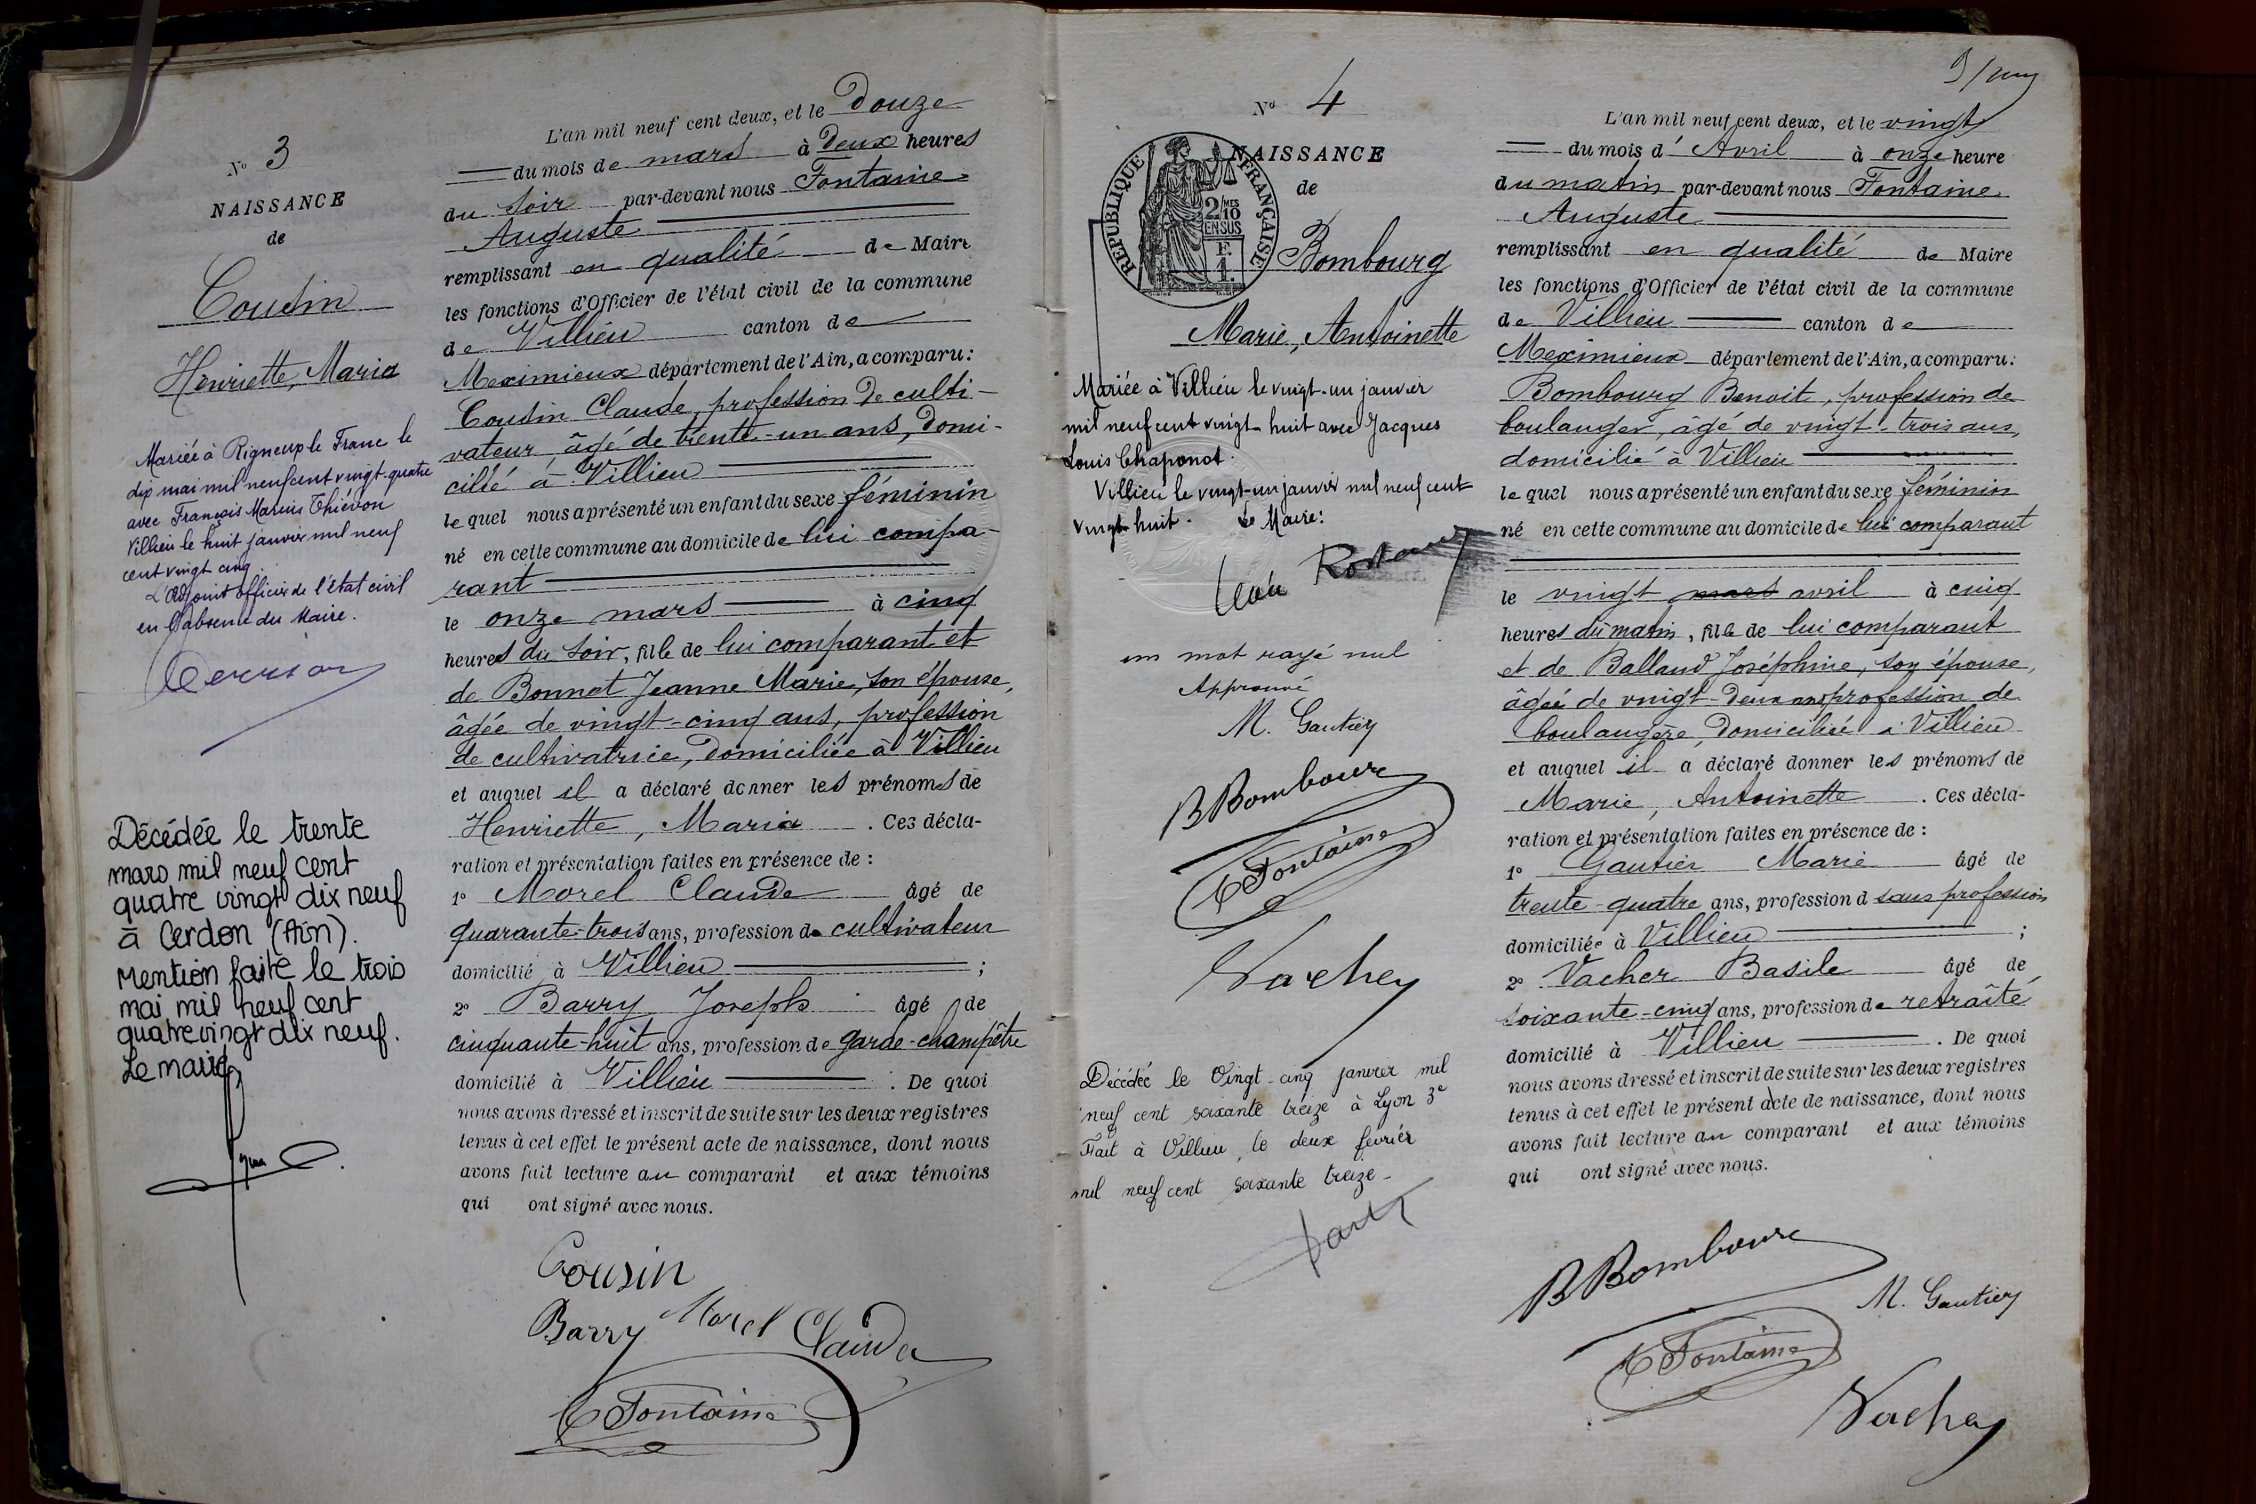 N° 3
NAISSANCE
de
Cousin
Henriette, Maria
Mariée à Rigneux le Franc le
dix mai mil neuf cent vingt-quatre
avec François Marius Thiévon
Villieu le huit janvier mil neuf
cent vingt cinq.
L'Adjoint officier de l'état civil
en l'absence du Maire.
Décédée le trente
mars mil neuf cent
quatre vingt dix neuf
à Cerdon (Ain).
Mention faite le trois
mai mil neuf cent
quatre vingt dix neuf.
Le maire
L'an mil neuf cent deux, et le Douze
du mois de mars à Deux heures
du Soir par-devant nous Fontaine
Auguste
remplissant en qualité de Maire
les fonctions d'Officier de l'état civil de la commune
de Villieu canton de
Meximieux département de l'Ain, a comparu:
Cousin Claude, profession de culti-
vateur, âgé de trente-un ans, domi-
cilié à Villieu
lequel nous a présenté un enfant du sexe féminin
né en cette commune au domicile de lui compa-
rant
le onze mars à cinq
heures du Soir, fille de lui comparant et
de Bonnet Jeanne Marie, son épouse,
âgée de vingt-cinq ans, profession
de cultivatrice, domiciliée à Villieu
et auquel il a déclaré donner les prénoms de
Henriette, Maria. Ces décla-
ration et présentation faites en présence de :
1° Morel Claude âgé de
quarante-trois ans, profession de cultivateur
domicilié à Villieu ;
2° Barry Joseph âgé de
cinquante-huit ans, profession de garde-champêtre
domicilié à Villieu. De quoi
nous avons dressé et inscrit de suite sur les deux registres
tenus à cet effet le présent acte de naissance, dont nous
avons fait lecture au comparant et aux témoins
qui ont signé avec nous.
Cousin
Barry Morel Claude
Fontaine
N° 4
NAISSANCE
de
REPUBLIQUE FRANÇAISE
2/10 MES
EN SUS
F.
1.
Bombourg
Marie, Antoinette
Mariée à Villieu le vingt-un janvier
mil neuf cent vingt-huit avec Jacques
Louis Chaponot.
Villieu le vingt-un janvier mil neuf cent
vingt-huit. Le Maire:
un mot rayé nul
Approuvé
M. Gautier
B Bombourg
Fontaine
Vachey
Décédée le Vingt-cinq janvier mil
neuf cent soixante treize à Lyon 3e
Fait à Villieu, le deux février
mil neuf cent soixante treize-
L'an mil neuf cent deux, et le vingt
du mois d'Avril à onze heure
du matin par-devant nous Fontaine
Auguste
remplissant en qualité de Maire
les fonctions d'Officier de l'état civil de la commune
de Villieu canton de
Meximieux département de l'Ain, a comparu:
Bombourg Benoit, profession de
boulanger, âgé de vingt-trois ans,
domicilié à Villieu
lequel nous a présenté un enfant du sexe féminin
né en cette commune au domicile de lui comparant
le vingt mars avril à cinq
heures du matin, fille de lui comparant
et de Balland Joséphine, son épouse,
âgée de vingt-deux ans profession de
boulangère, domiciliée à Villieu
et auquel il a déclaré donner les prénoms de
Marie, Antoinette. Ces décla-
ration et présentation faites en présence de :
1° Gautier Marie âgé de
trente-quatre ans, profession d sans profession
domiciliée à Villieu ;
2° Vacher Basile âgé de
soixante-cinq ans, profession de retraîté
domicilié à Villieu. De quoi
nous avons dressé et inscrit de suite sur les deux registres
tenus à cet effet le présent acte de naissance, dont nous
avons fait lecture au comparant et aux témoins
qui ont signé avec nous.
B Bombourg
M. Gautier
Fontaine
Vachey